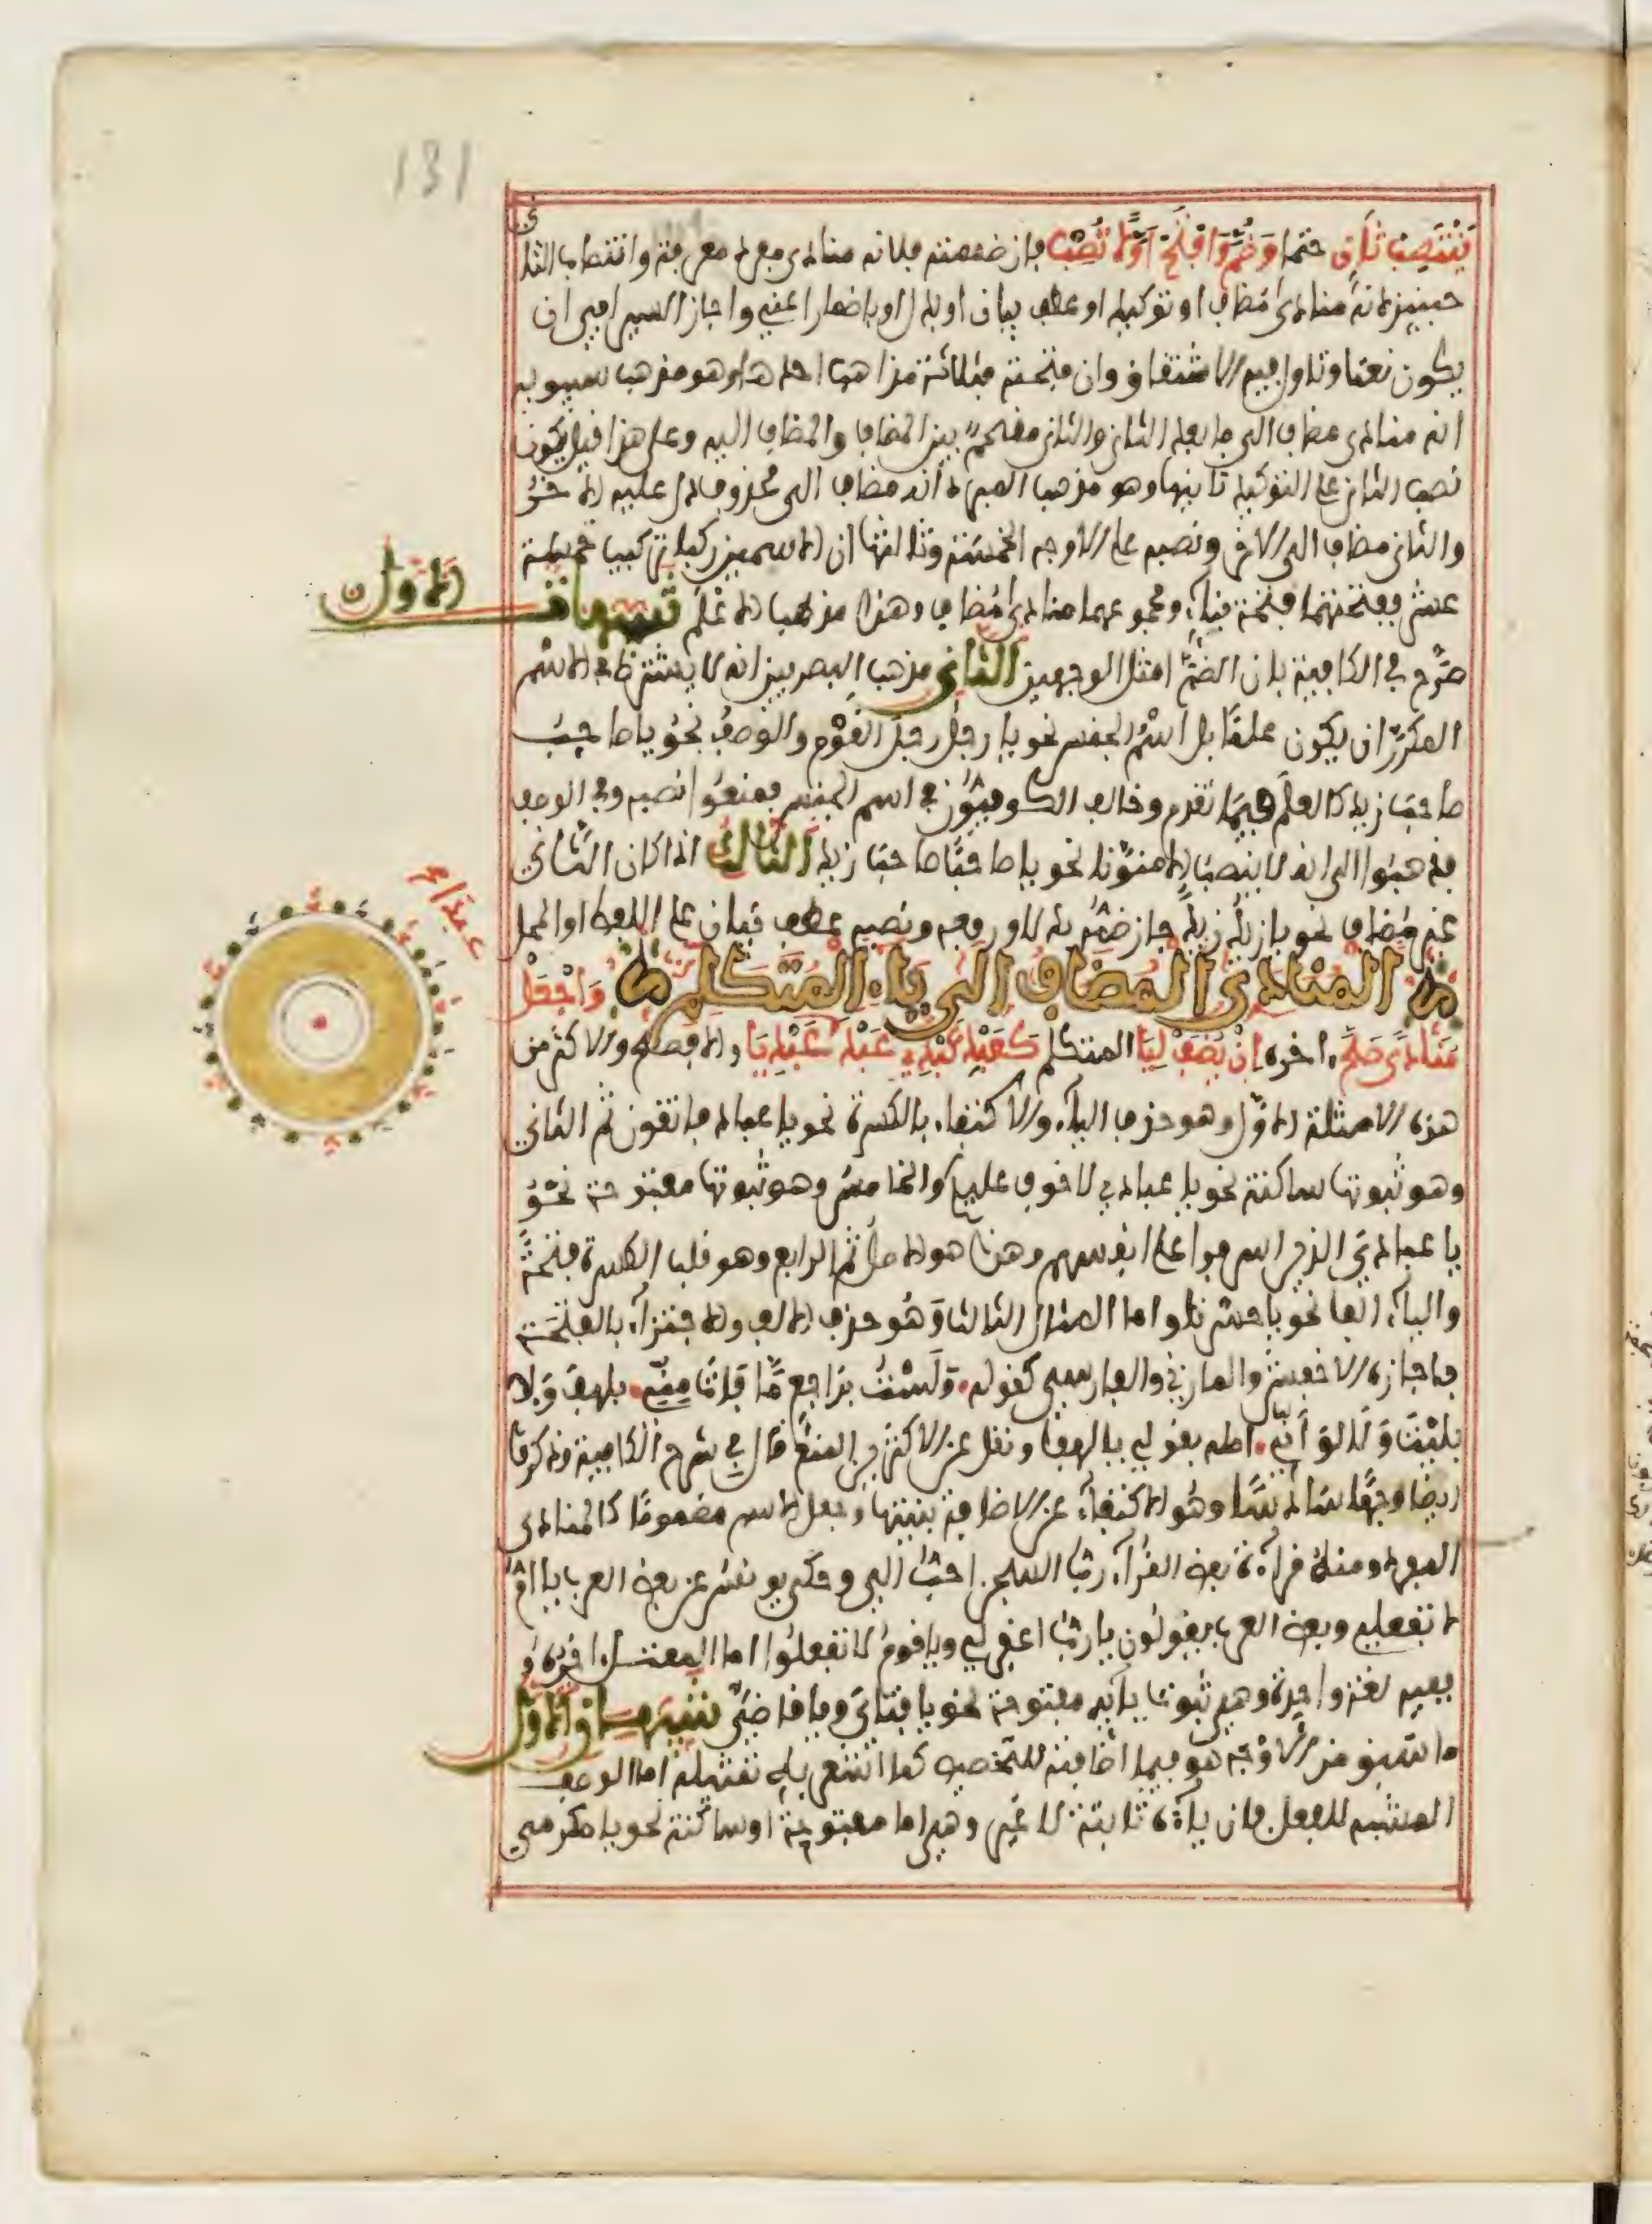 131
يَنْتَصِبْ ثَانٍ حتما وَضُمَّ وَافْتَحْ أَوَّلًا تُصِبْ فإن ضممته فلأنه منادى مفرد معرفة وانتصاب الثاني
حينئذ لأنه منادى مضاف او توكيد او عطف بيان او بدل او باضمار اعني واجاز السيرافي ان
يكون نعتا وتاول فيه الاشتقاق وان فتحته فثلاثة مذاهب احدها وهو مذهب سيبويه
انه منادى مضاف الى ما بعد الثاني والثاني مقحم بين المضاف والمضاف اليه وعلى هذا قيل يكون
نصب الثاني على التوكيد ثانيها وهو مذهب المبرد أنه مضاف الى محذوف دل عليه الاخر
والثاني مضاف الى الاخر ونصبه على الاوجه الخمسة وثالثها ان الاسمين ركبا تركيب خمسة
عشر ففتحتهما فتحة بناء ومجموعهما منادى مضاف وهذا مذهب الاعلم تنبيهات الاول
صرَّح في الكافية بان الضمَّ امثل الوجهين الثاني مذهب البصريين انه لا يشترط في الاسم
المكرّر ان يكون علمًا بل اسم الجنس نحو يا رجل رجل القوم والوصف نحو يا صاحب
صاحب زيد كالعلم فيما تقدم وخالف الكوفيون في اسم الجنس فمنعوا نصبه وفي الوصف
فذهبوا الى انه لا ينصب الا منونا نحو يا صاحبًا صاحب زيد الثالث اذا كان الثاني
غير مضاف نحو يا زيد زيد جاز ضمه بدلا ورفعه ونصبه عطف بيان على اللفظ او المحل
المنادى المضاف الى ياء المتكلم وَاجْعَلْ
مُنَادًى صَحَّ اخره إِنْ يُضَفْ لِيَا المتكلم كَعَبْدِ عَبْدِي عَبْدَ عَبْدَا عَبْدِيَا والافصح والاكثر من
هذه الامثلة الاول وهو حذف الياء والاكتفاء بالكسرة نحو يا عباد فاتقون ثم الثاني
وهو ثبوتها ساكنة نحو يا عبادي لا خوف عليكم والخامس وهو ثبوتها مفتوحة نحو
يا عبادي الذين اسرفوا على انفسهم وهذا هو الاصل ثم الرابع وهو قلب الكسرة فتحة
والياء الفا نحو يا حسرتا واما المثال الثالث وهو حذف الالف والاجتزاء بالفتحة
فاجازه الاخفش والمازني والفارسي كقوله ولست براجع ما فات مني بلهف ولا
بليت ولا لو أني اصله بقولي يا لهفا ونقل عن الاكثرين المنع قال في شرح الكافية وذكروا
ايضا وجها سادسا وهو الاكتفاء عن الاضافة بنيتها وجعل الاسم مضموما كالمنادى
المفرد ومنه قراءة بعض القراء ربُّ السجن احبُّ الي وحكى يونس عن بعض العرب يا امُّ
لا تفعلي وبعض العرب يقولون يا ربُّ اغفر لي ويا قوم لا تفعلوا اما المعتل اخره
ففيه لغة واحدة وهي ثبوت يائه مفتوحة نحو يا فتاي ويا قاضيَّ تنبيهان الاول
ما سبق من الاوجه هو فيما اضافته للتخصيص كما اشعر به تمثيله اما الوصف
المشبه للفعل فان ياءه ثابتة لا غير وهي اما مفتوحة او ساكنة نحو يا مكرمي